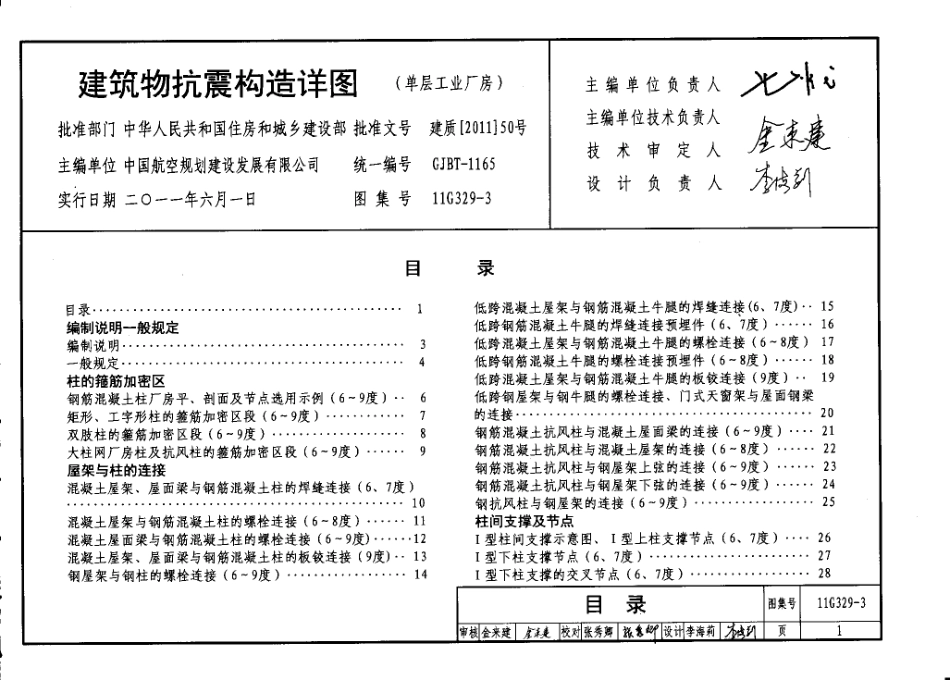 建筑物抗震构造详图 (单层工业厂房)
批准部门 中华人民共和国住房和城乡建设部 批准文号 建质[2011]50号
主编单位 中国航空规划建设发展有限公司 统一编号 GJBT-1165
实行日期 二〇一一年六月一日 图集号 11G329-3
主编单位负责人
主编单位技术负责人 金来建
技术审定人
设计负责人
目 录
目录 1
编制说明一般规定
编制说明 3
一般规定 4
柱的箍筋加密区
钢筋混凝土柱厂房平、剖面及节点选用示例(6~9度) 6
矩形、工字形柱的箍筋加密区段(6~9度) 7
双肢柱的箍筋加密区段(6~9度) 8
大柱网厂房柱及抗风柱的箍筋加密区段(6~9度) 9
屋架与柱的连接
混凝土屋架、屋面梁与钢筋混凝土柱的焊缝连接(6、7度)
10
混凝土屋架与钢筋混凝土柱的螺栓连接(6~8度) 11
混凝土屋面梁与钢筋混凝土柱的螺栓连接(6~9度) 12
混凝土屋架、屋面梁与钢筋混凝土柱的板铰连接(9度) 13
钢屋架与钢柱的螺栓连接(6~9度) 14
低跨混凝土屋架与钢筋混凝土牛腿的焊缝连接(6、7度) 15
低跨钢筋混凝土牛腿的焊缝连接预埋件(6、7度) 16
低跨混凝土屋架与钢筋混凝土牛腿的螺栓连接(6~8度) 17
低跨钢筋混凝土牛腿的螺栓连接预埋件(6~8度) 18
低跨混凝土屋架与钢筋混凝土牛腿的板铰连接(9度) 19
低跨钢屋架与钢牛腿的螺栓连接、门式天窗架与屋面钢梁
的连接 20
钢筋混凝土抗风柱与混凝土屋面梁的连接(6~9度) 21
钢筋混凝土抗风柱与混凝土屋架的连接(6~8度) 22
钢筋混凝土抗风柱与钢屋架上弦的连接(6~9度) 23
钢筋混凝土抗风柱与钢屋架下弦的连接(6~9度) 24
钢抗风柱与钢屋架的连接(6~9度) 25
柱间支撑及节点
Ⅰ型柱间支撑示意图、Ⅰ型上柱支撑节点(6、7度) 26
Ⅰ型下柱支撑节点(6、7度) 27
Ⅰ型下柱支撑的交叉节点(6、7度) 28
目 录 图集号 11G329-3
审核 金来建 金来建 校对 张秀卿 张秀卿 设计 李海莉 李海莉 页 1